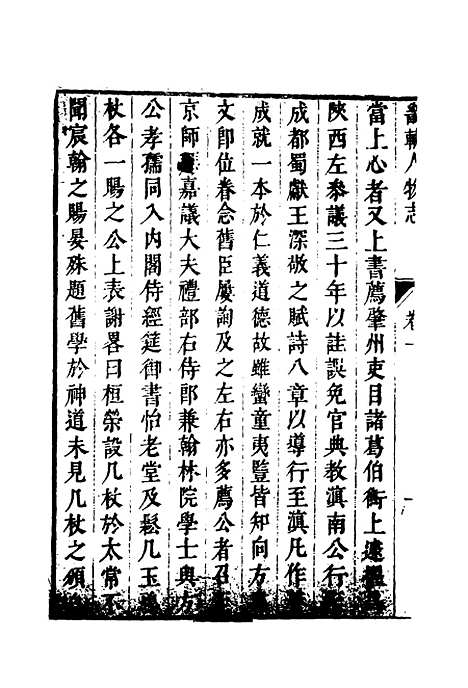 翰人物志 卷一
當上心者又上書薦肇州吏目諸葛伯衡上遽擢
陝西左參議三十年以詿誤免官典教滇南公行
成都蜀獻王深敬之賦詩八章以導行至滇凡作
成就一本於仁義道德故雖蠻童夷豎皆知向方
文即位眷念舊臣屢詢及之左右亦多薦公者召
京師 嘉議大夫禮部右侍郎兼翰林院學士與方
公孝孺同入內閣侍經筵御書怡老堂及髹几玉
杖各一賜之公上表謝畧曰桓榮設几杖於太常不
聞宸翰之賜晏殊題舊學於神道未見几杖之頒